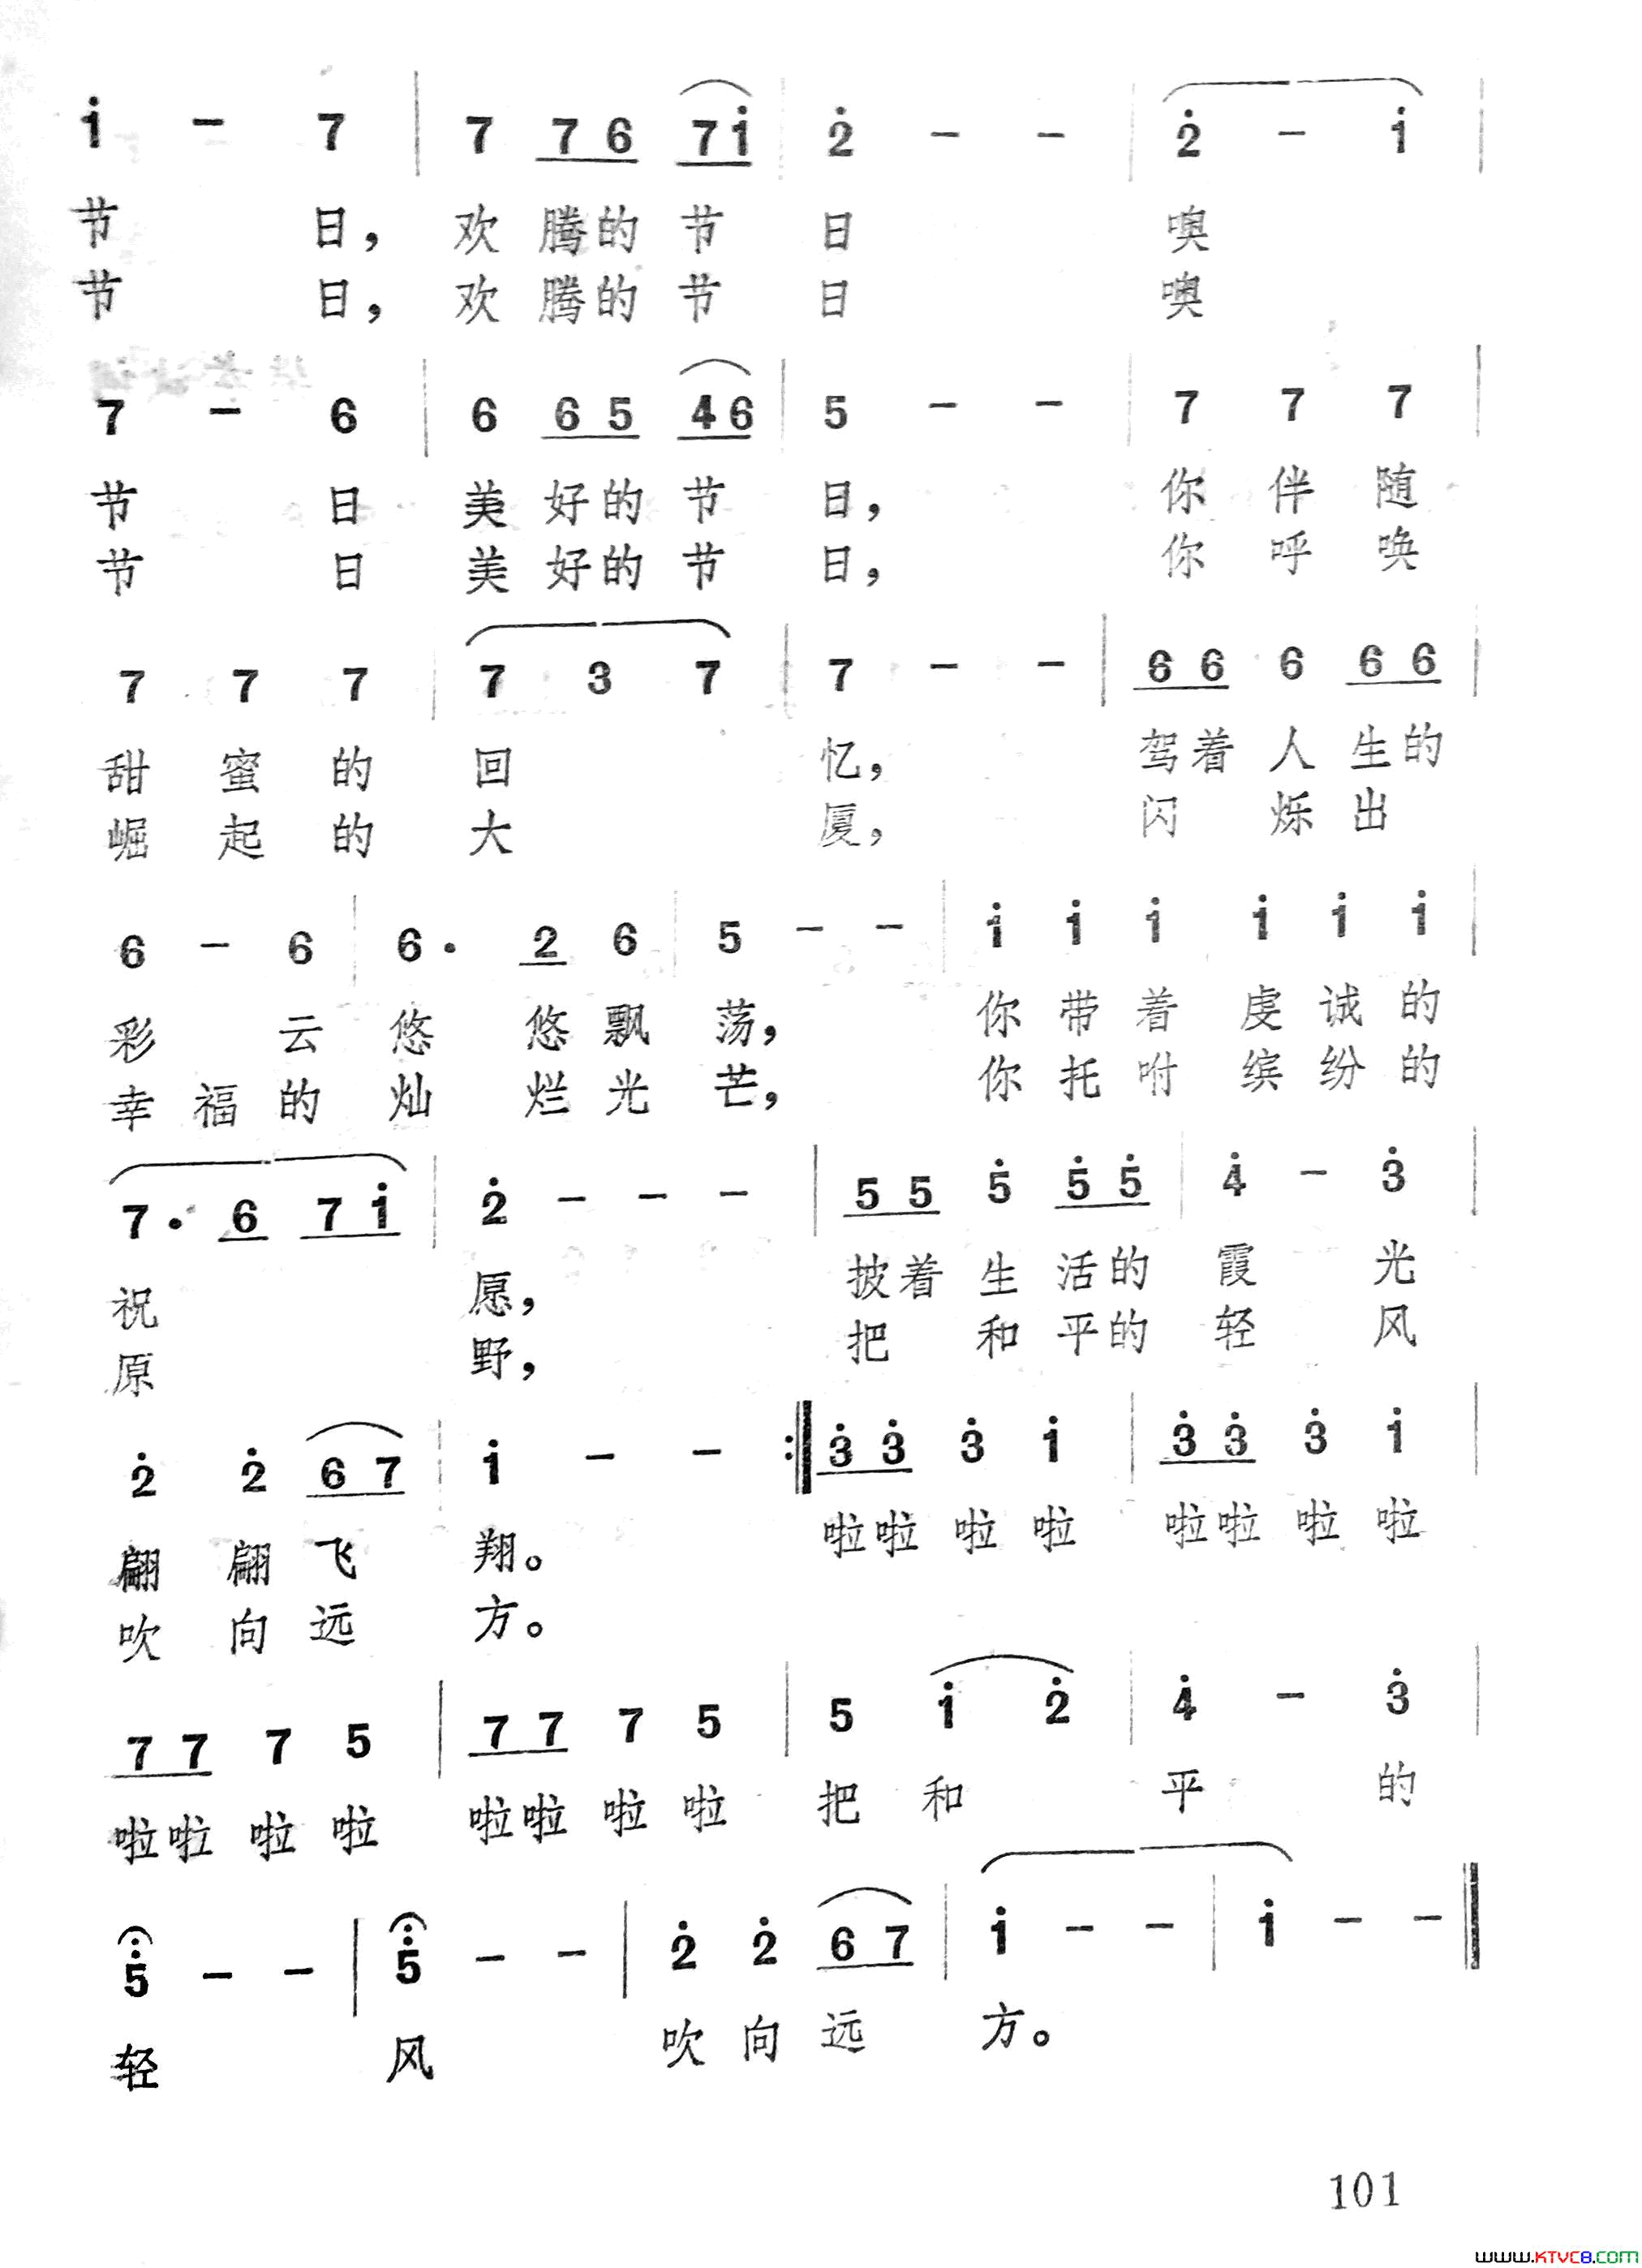 1̇ - 7 | 7 7 6 7 1̇ | 2̇ - - | 2̇ - 1̇ |
节 日，欢 腾的 节 日 噢
节 日，欢 腾的 节 日 噢
7 - 6 | 6 6 5 4 6 | 5 - - | 7 7 7 |
节 日 美 好的 节 日， 你 伴 随
节 日 美 好的 节 日， 你 呼 唤
7 7 7 | 7 3 7 | 7 - - | 6 6 6 6 6 |
甜 蜜 的 回 忆， 驾着 人 生的
崛 起 的 大 厦， 闪 烁 出
6 - 6 | 6· 2 6 | 5 - - | 1̇ 1̇ 1̇ | 1̇ 1̇ 1̇ |
彩 云 悠 悠 飘 荡， 你 带 着 虔 诚 的
幸 福 的 灿 烂 光 芒， 你 托 咐 缤 纷 的
7· 6 7 1̇ | 2̇ - - - | 5 5 5̇ 5̇ 5̇ | 4̇ - 3̇ |
祝 愿， 披着 生 活的 霞 光
原 野， 把 和 平的 轻 风
2̇ 2̇ 6 7 | 1̇ - - :‖ 3̇ 3̇ 3̇ 1̇ | 3̇ 3̇ 3̇ 1̇ |
翩 翩 飞 翔。 啦啦 啦 啦 啦啦 啦 啦
吹 向 远 方。
7 7 7 5 | 7 7 7 5 | 5 1̇ 2̇ | 4̇ - 3̇ |
啦啦 啦 啦 啦啦 啦 啦 把 和 平 的
5̇ - - | 5̇ - - | 2̇ 2̇ 6 7 | 1̇ - - | 1̇ - - ‖
轻 风 吹 向 远 方。
101
www.KTVC8.COM